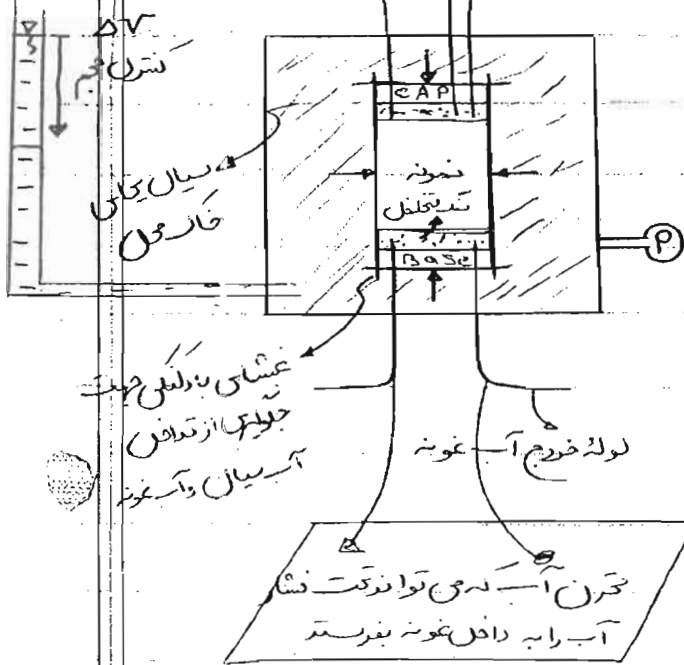 ΔV
کنترل حجم
CAP
نمونه
سنگ متخلخل
Base
P
سیال بجای
خاک محل
غشای لاستیکی جهت
جلوگیری از تداخل
آب سیال و آب نمونه
لولهٔ خروج آب نمونه
مخزن آب که می تواند تحت فشار
آب را به داخل نمونه بفرستد